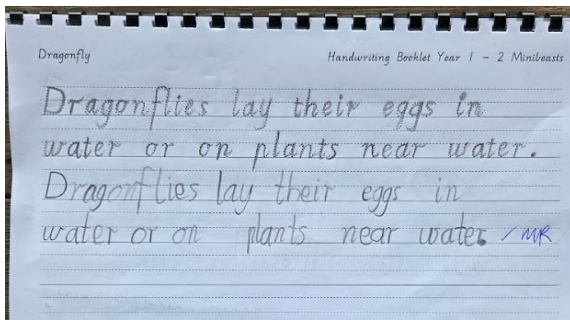 Dragonfly
Handwriting Booklet Year 1 - 2 Minibeasts
Dragonflies lay their eggs in
water or on plants near water.
Dragonflies lay their eggs in
water or on plants near water. ✓ MR